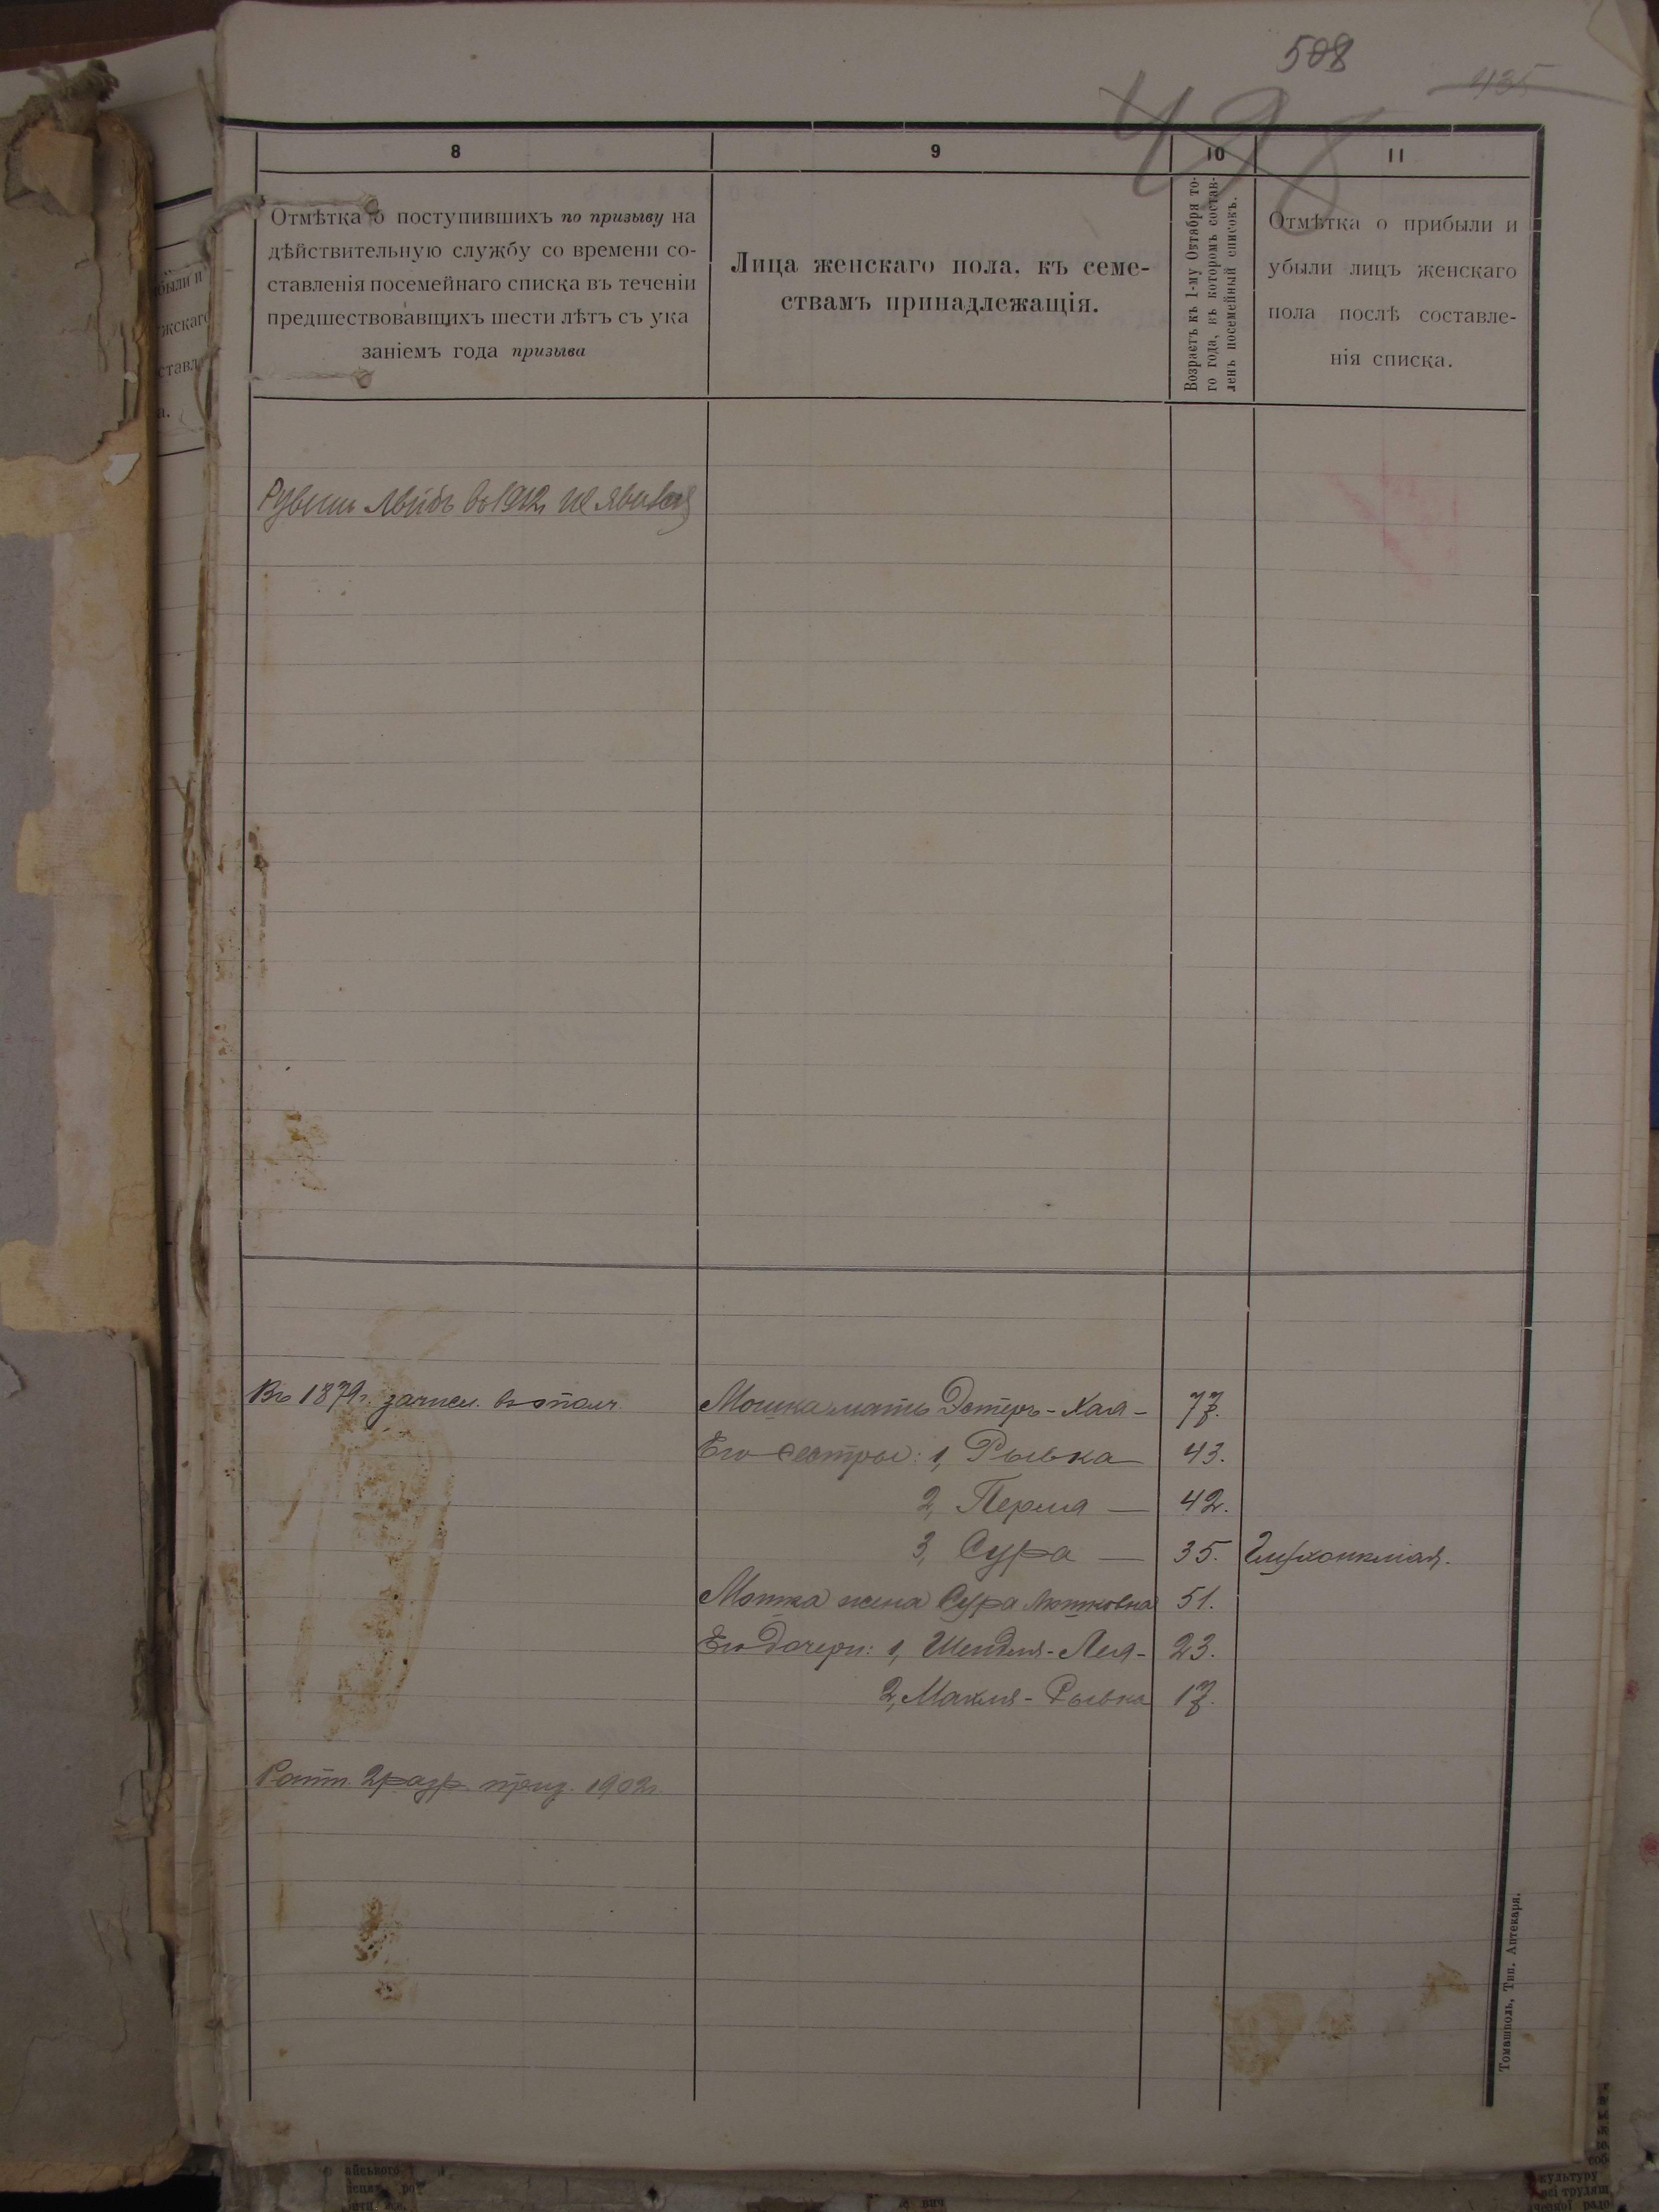 508
435
498
8
9
10
11
Отмѣтка о поступившихъ по призыву на
дѣйствительную службу со времени со-
ставленія посемейнаго списка въ теченіи
предшествовавшихъ шести лѣтъ съ ука
заніемъ года призыва
Лица женскаго пола, къ семе-
ствамъ принадлежащія.
Возрастъ къ 1-му Октября то-
го года, въ которомъ состав-
ленъ посемейный списокъ.
Отмѣтка о прибыли и
убыли лицъ женскаго
пола послѣ составле-
нія списка.
Рувинъ Лейбъ въ 1912г не явился
Въ 1879г. зачисл. въ ополч.
Мошка мать Эстеръ-Хая- 77.
Его сестры: 1, Рывка 43.
2, Перля — 42.
3, Сура — 35. Глухонѣмая.
Мошка жена Сура Мошковна 51.
Его дочери: 1, Шендля-Лея- 23.
2, Махля-Рывка 17.
Ратн. 2 разр. приз. 1902г.
Томашполь, Тип. Аптекаря.